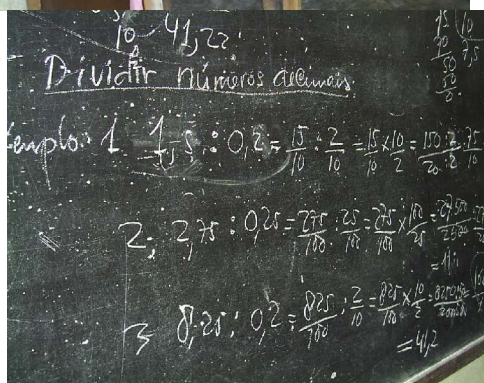 10 41,22
Dividir números decimais
Exemplo: 1 1,5 : 0,2 = 15/10 : 2/10 = 15/10 × 10/2 = 150/20 : 2/2 = 75/10
2; 2,75 : 0,25 = 275/100 : 25/100 = 275/100 × 100/25 = 27500/2500
= 11
3 8,25 : 0,2 = 825/100 : 2/10 = 825/100 × 10/2 =
= 41,2
15 10
7,5
50
50
0